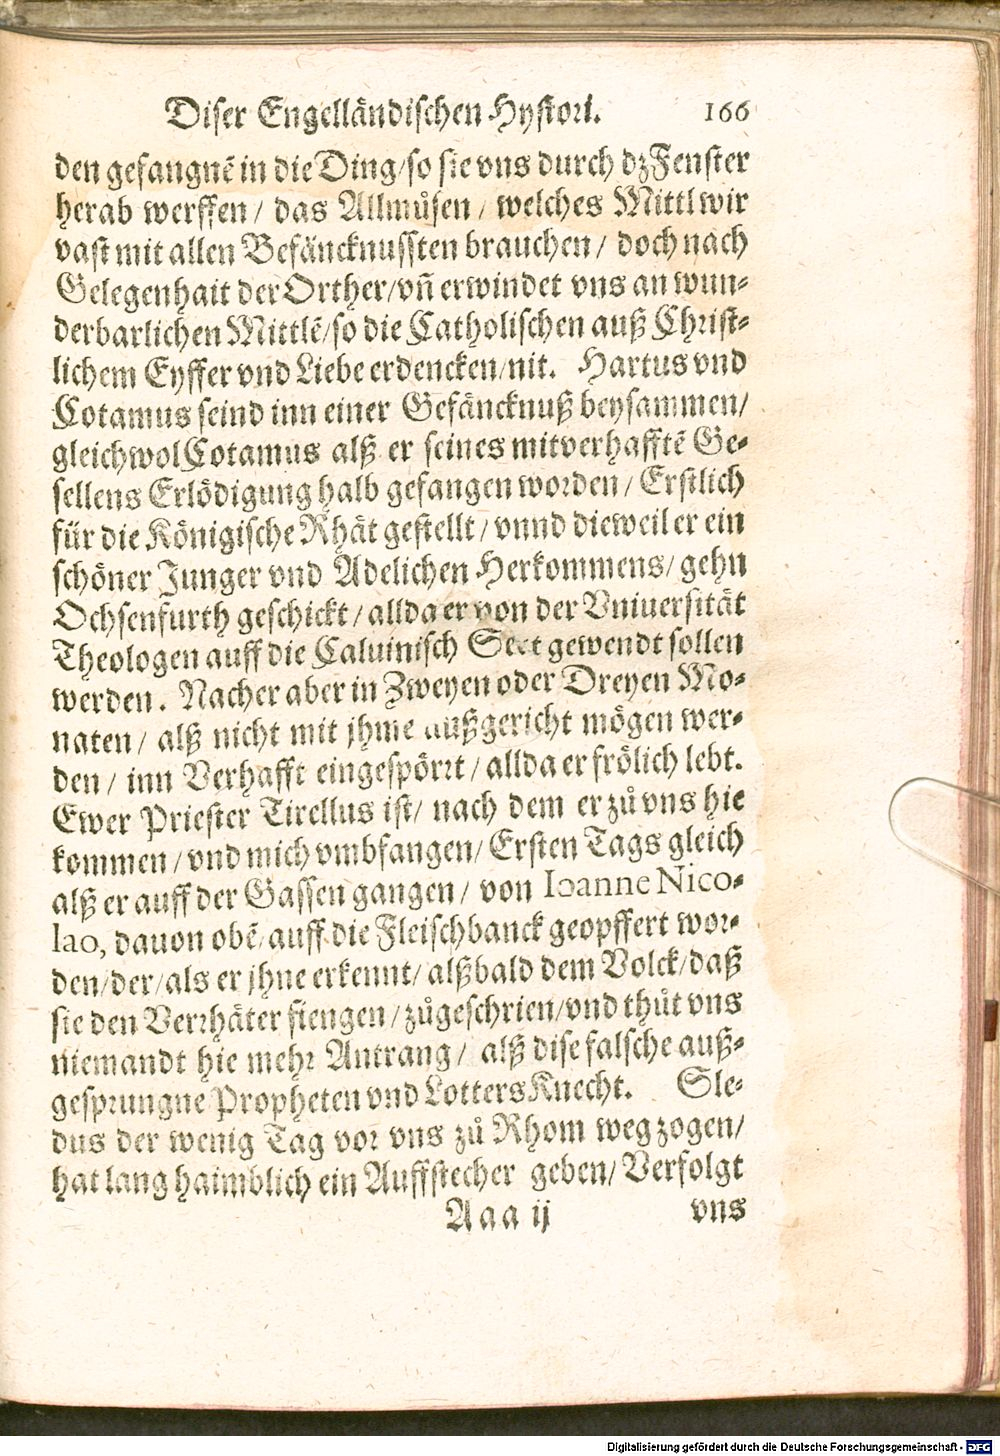 Diser Engelländischen Hystori. 166
den gefangnē in die Ding/so sie vns durch dz Fenster
herab werffen/ das Allmůsen/ welches Mittl wir
vast mit allen Befäncknussten brauchen/ doch nach
Gelegenhait der Orther/vn̄ erwindet vns an wun-
derbarlichen Mittlē/so die Catholischen auß Christ-
lichem Eyffer vnd Liebe erdencken/nit. Hartus vnd
Cotamus seind inn einer Gefäncknuß beysammen/
gleichwol Cotamus alß er seines mitverhafftē Ge-
sellens Erlödigung halb gefangen worden/ Erstlich
für die Königische Rhät gestellt/ vnnd dieweil er ein
schöner Junger vnd Adelichen Herkommens/ gehn
Ochsenfurth geschickt/ allda er von der Vniuersität
Theologen auff die Caluinisch Sect gewendt sollen
werden. Nacher aber in Zweyen oder Dreyen Mo-
naten/ alß nicht mit jhme außgericht mögen wer-
den/ inn Verhafft eingespörrt/ allda er frölich lebt.
Ewer Priester Tirellus ist/ nach dem er zů vns hie
kommen/vnd mich vmbfangen/ Ersten Tags gleich
alß er auff der Gassen gangen/ von Ioanne Nico-
lao, dauon obē/auff die Fleischbanck geopffert wor-
den/der/als er jhne erkennt/ alßbald dem Volck/daß
sie den Verrhäter fiengen/zůgeschrien/vnd thůt vns
niemandt hie mehr Antrang/ alß dise falsche auß-
gesprungne Propheten vnd Lotters Knecht. Sle-
dus der wenig Tag vor vns zů Rhom weg zogen/
hat lang haimblich ein Auffstecher geben/ Verfolgt
Aaa ij vns
Digitalisierung gefördert durch die Deutsche Forschungsgemeinschaft - DFG